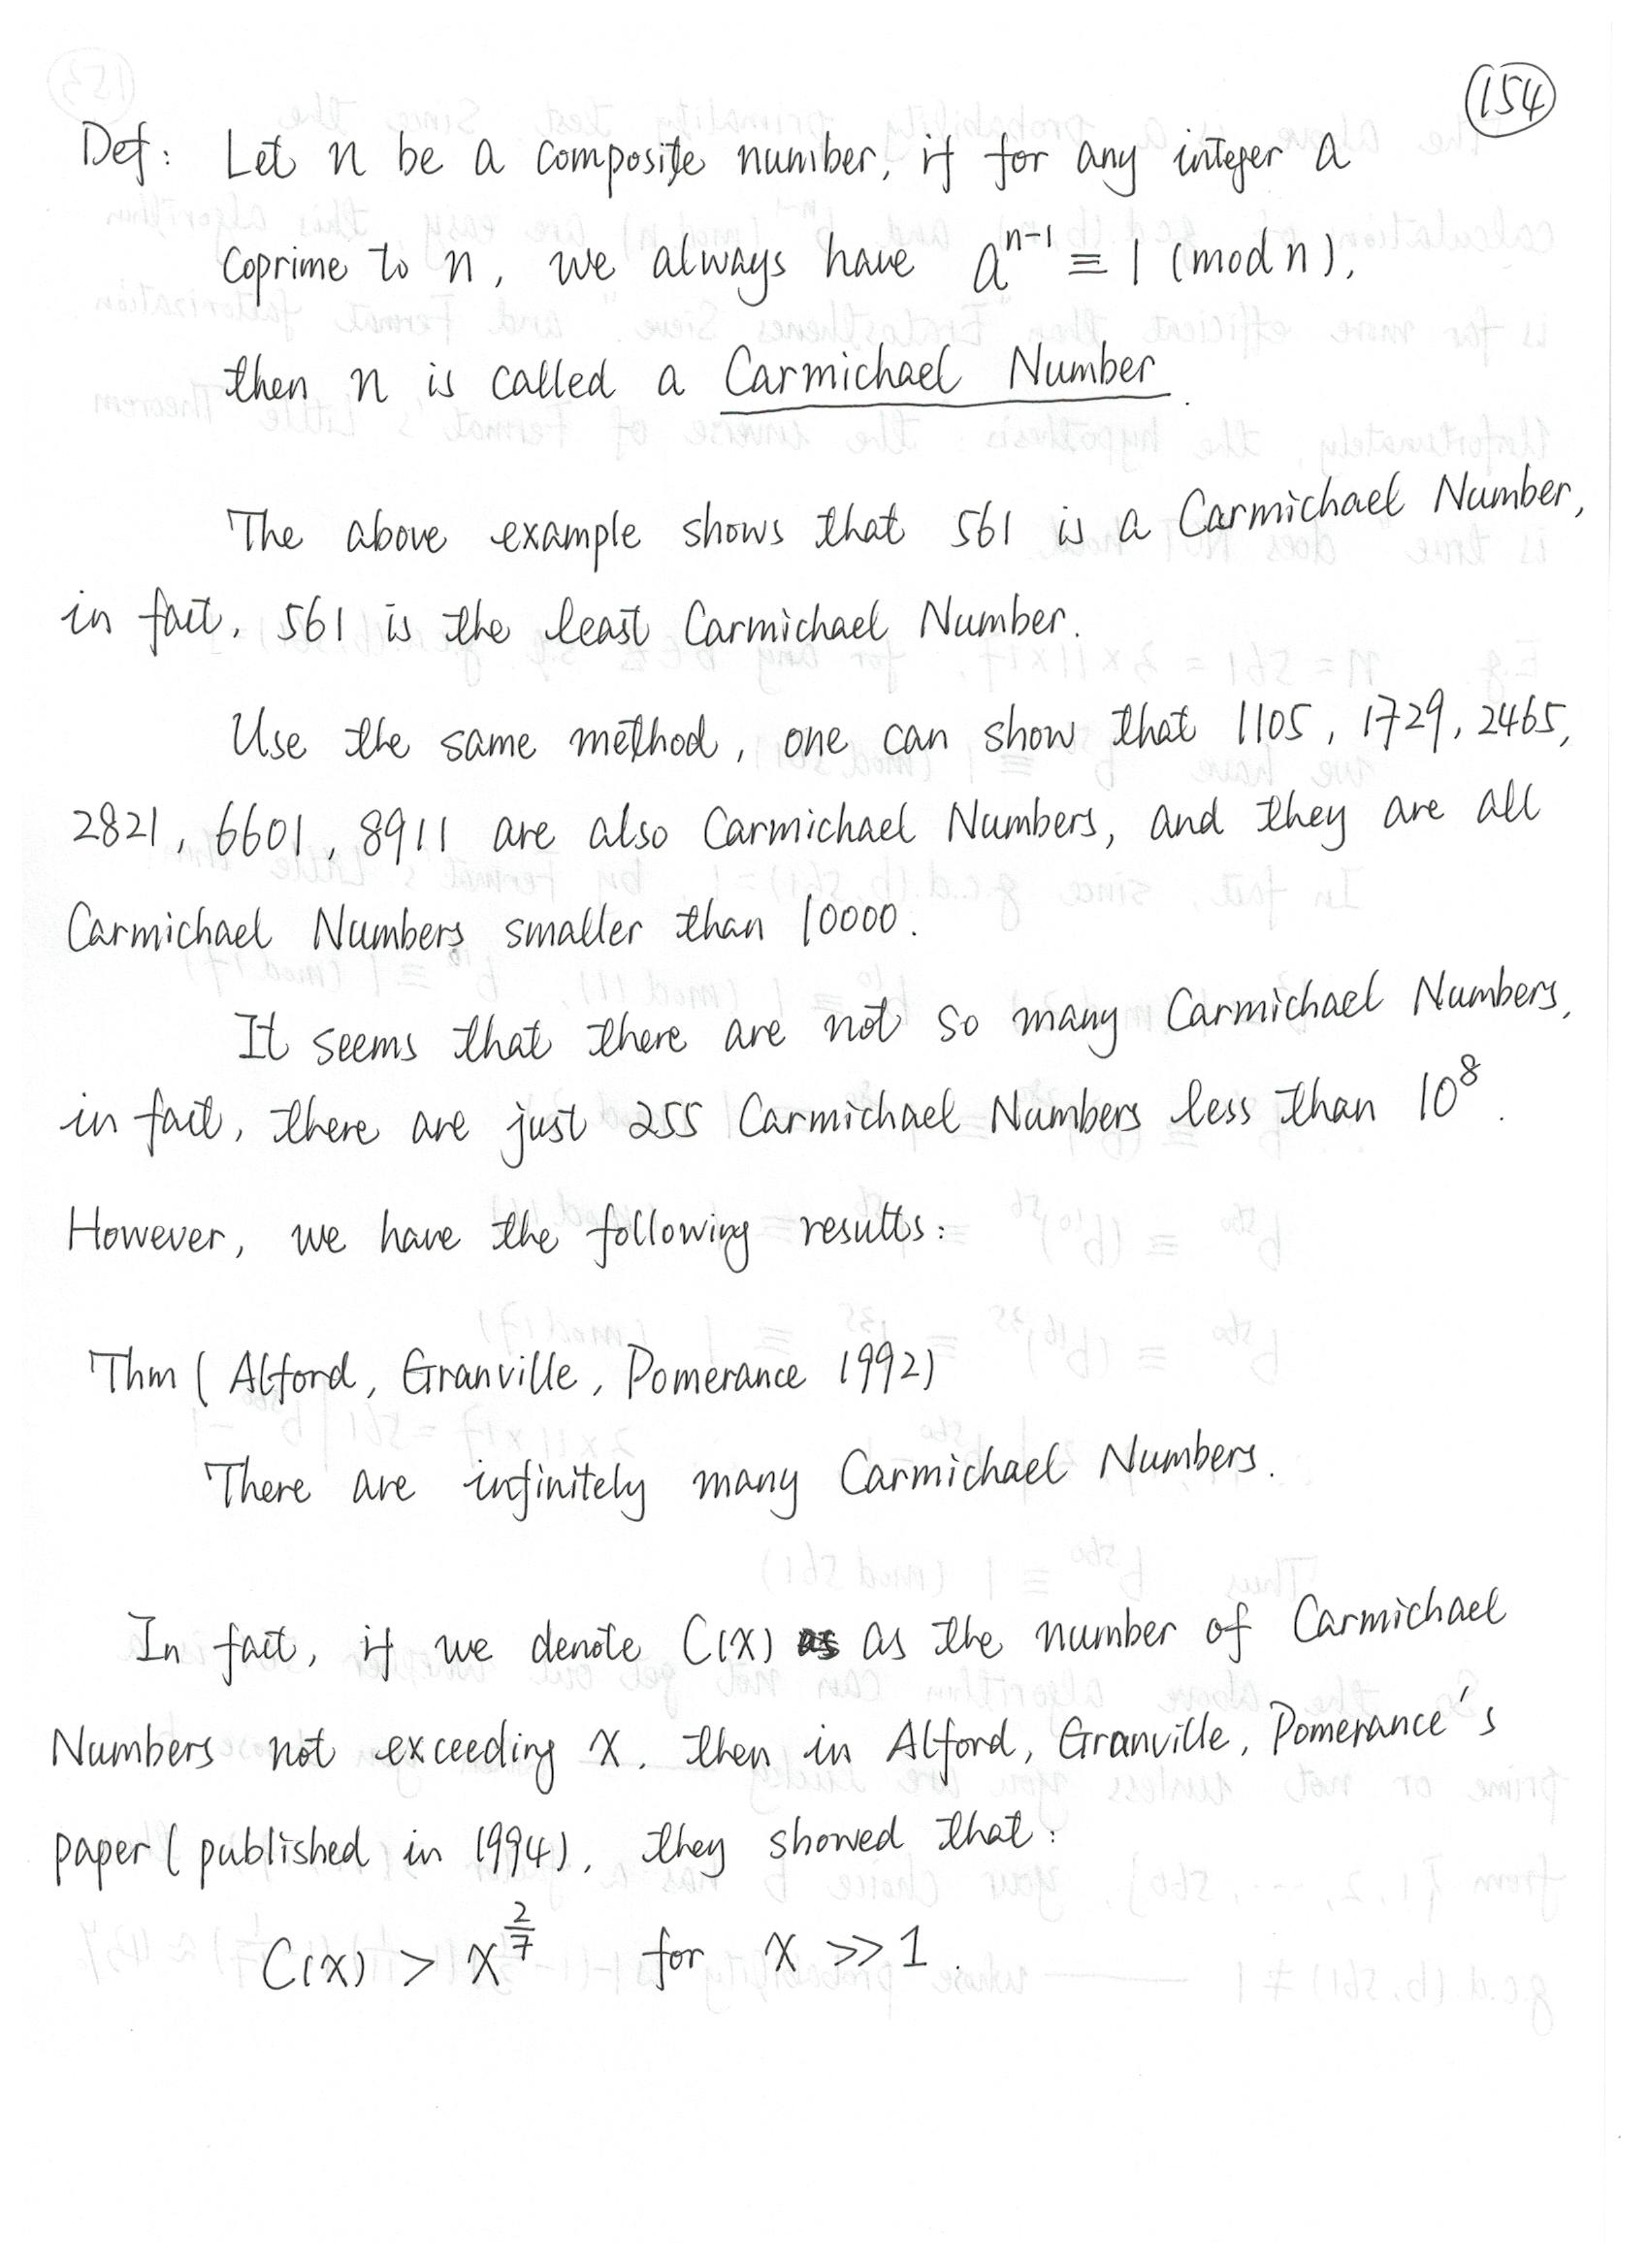 154
Def: Let n be a composite number, if for any integer a
coprime to n, we always have a^{n-1} ≡ 1 (mod n),
then n is called a Carmichael Number.
The above example shows that 561 is a Carmichael Number,
in fact, 561 is the least Carmichael Number.
Use the same method, one can show that 1105, 1729, 2465,
2821, 6601, 8911 are also Carmichael Numbers, and they are all
Carmichael Numbers smaller than 10000.
It seems that there are not so many Carmichael Numbers,
in fact, there are just 255 Carmichael Numbers less than 10^8.
However, we have the following results:
Thm (Alford, Granville, Pomerance 1992)
There are infinitely many Carmichael Numbers.
In fact, if we denote C(x) as as the number of Carmichael
Numbers not exceeding x. then in Alford, Granville, Pomerance's
paper (published in 1994), they showed that:
C(x) > x^{2/7} for x >> 1.